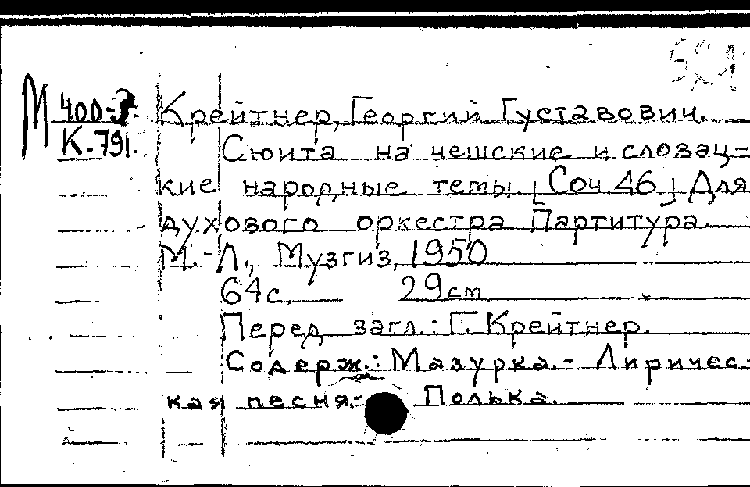 М 400-3. Крейтнер, Георгий Густавович.
К-791. Сюита на чешские и словац-
кие народные темы. [Соч 46] Для
духового оркестра Партитура.
М.-Л., Музгиз, 1950
64с. 29см
Перед загл.: Г. Крейтнер.
Содерж.: Мазурка.- Лиричес-
кая песня.- Полька.